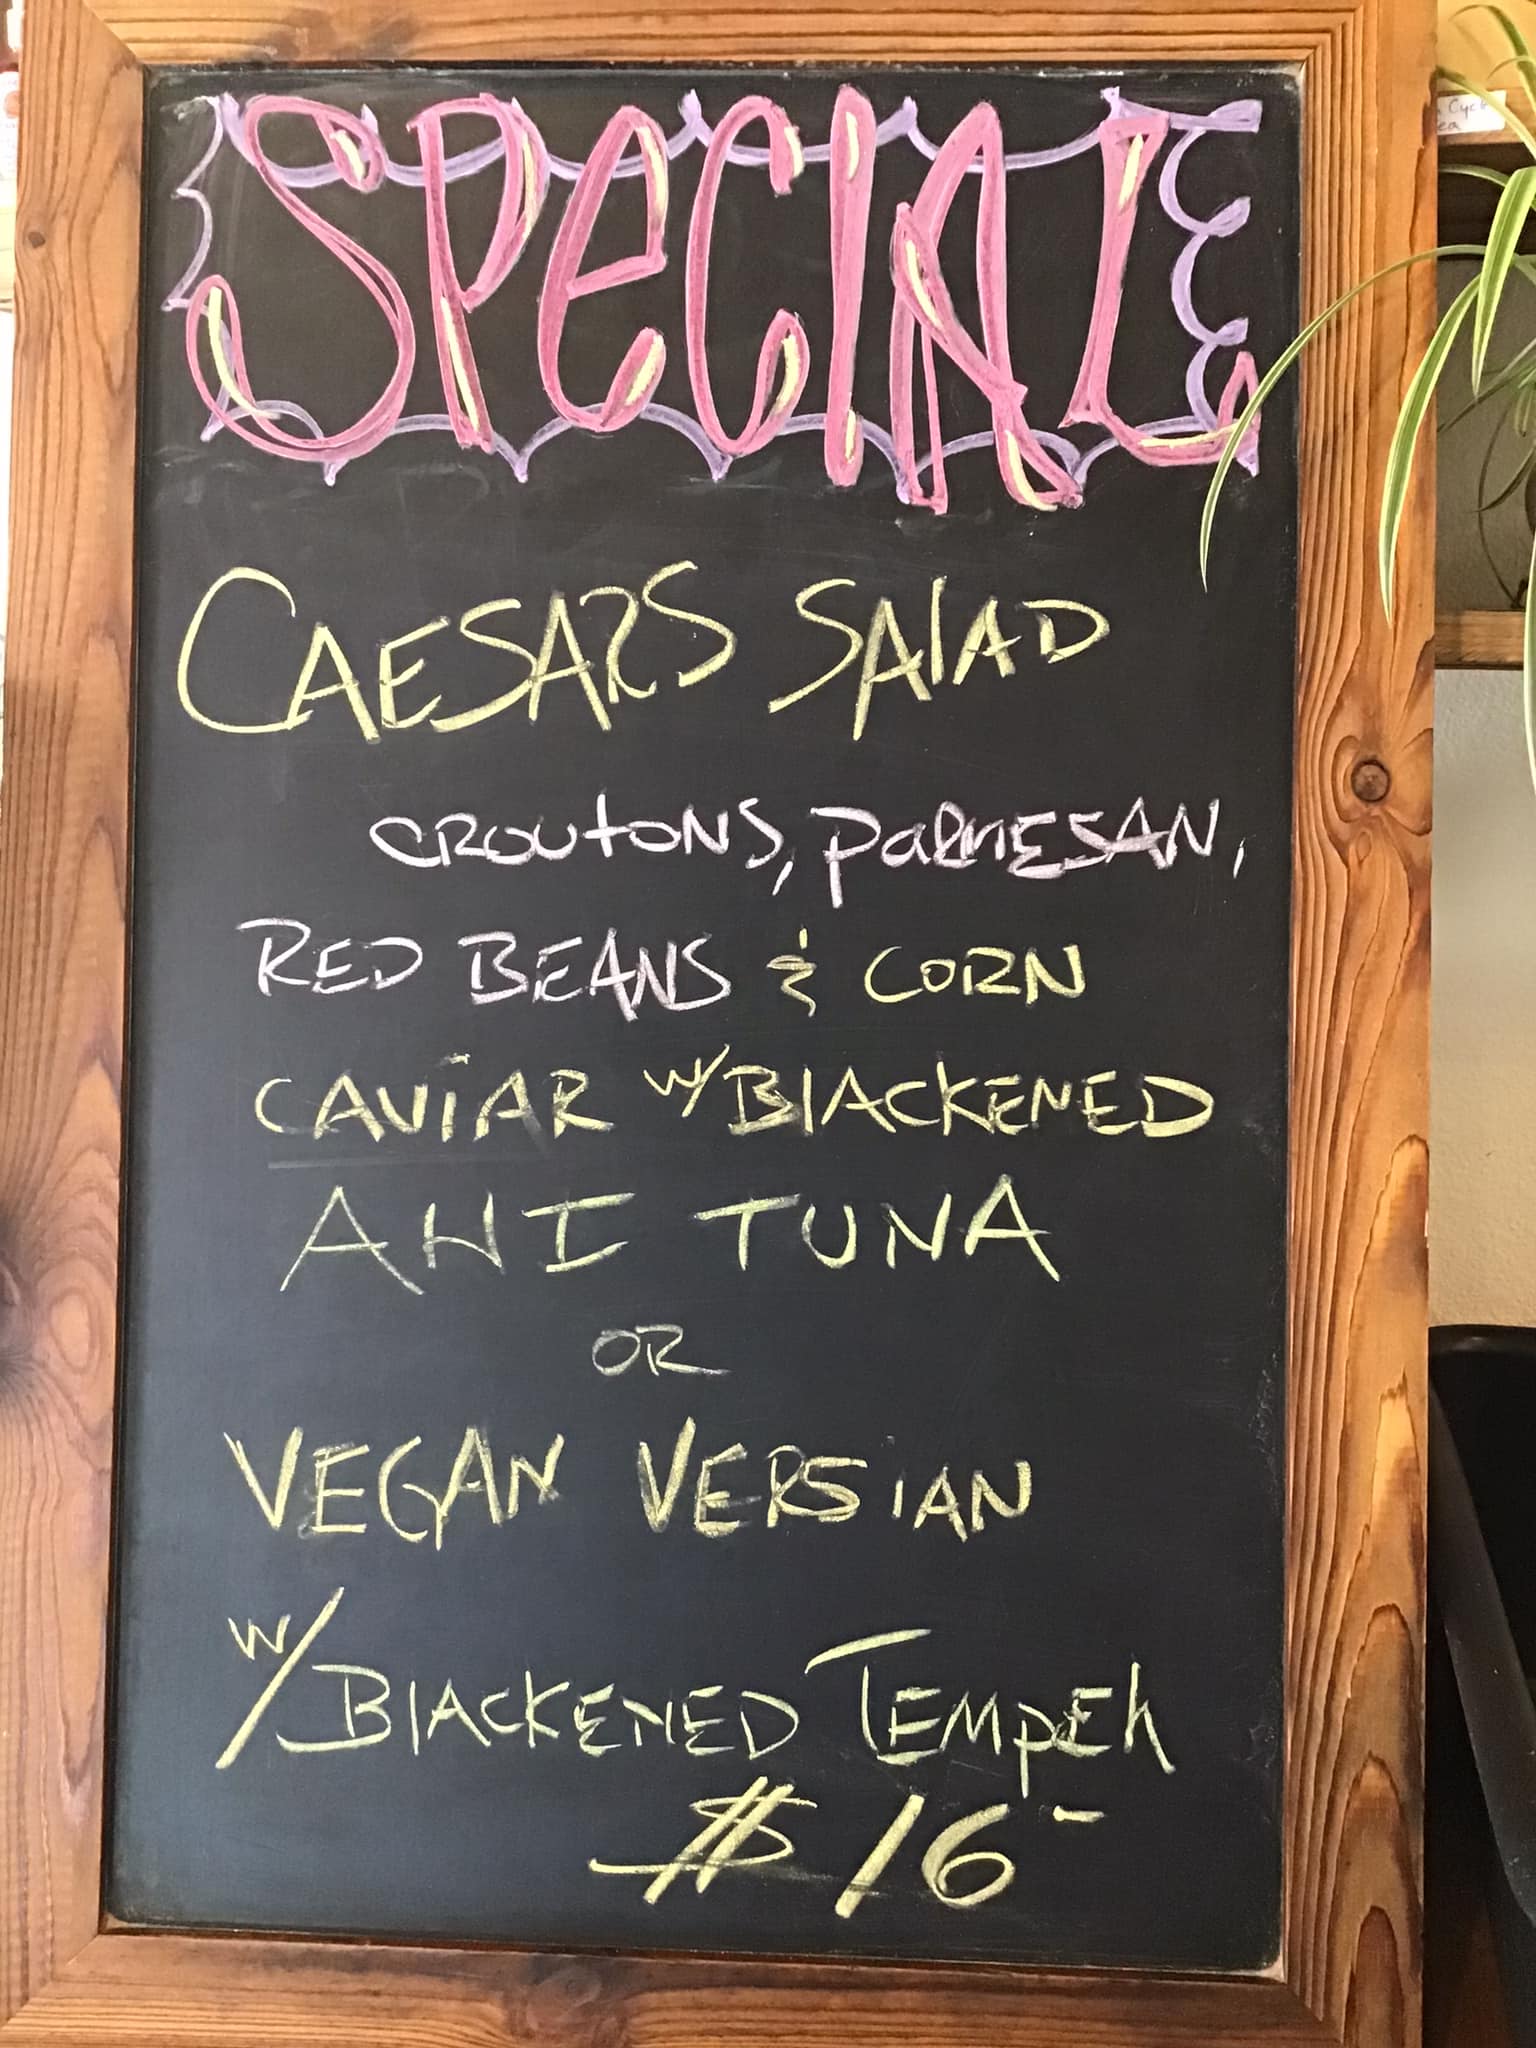 SPECIAL
CAESARS SALAD
CROUTONS, PARMESAN,
RED BEANS & CORN
CAVIAR W/ BLACKENED
AHI TUNA
OR
VEGAN VERSIAN
W/ BLACKENED TEMPEH
$16-